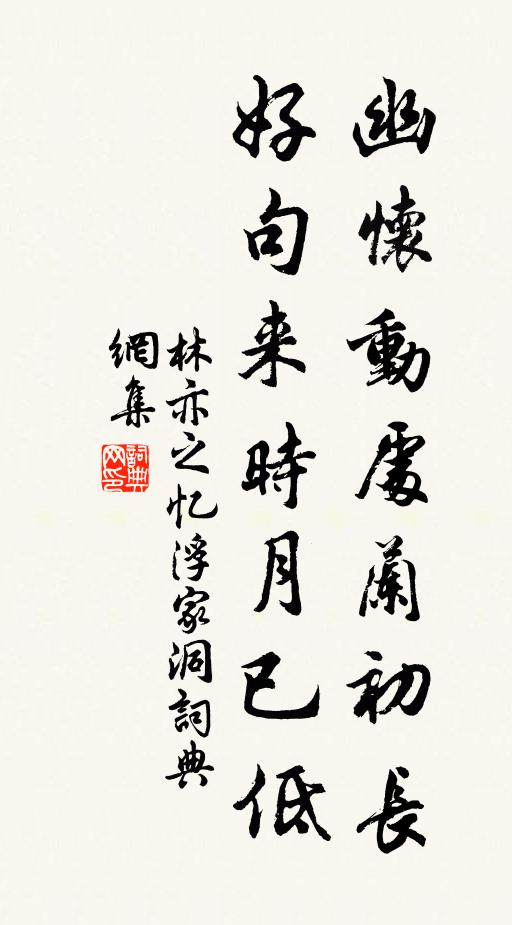 幽懷動處蘭初長
好句来時月已低
林亦之忆浮家洞詞典
網集
詞典网印